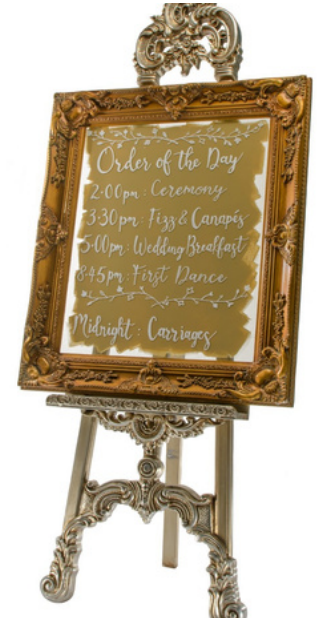 Order of the Day
2-00pm : Ceremony
3-30pm : Fizz & Canapés
5-00pm : Wedding Breakfast
8-45pm : First Dance
Midnight : Carriages